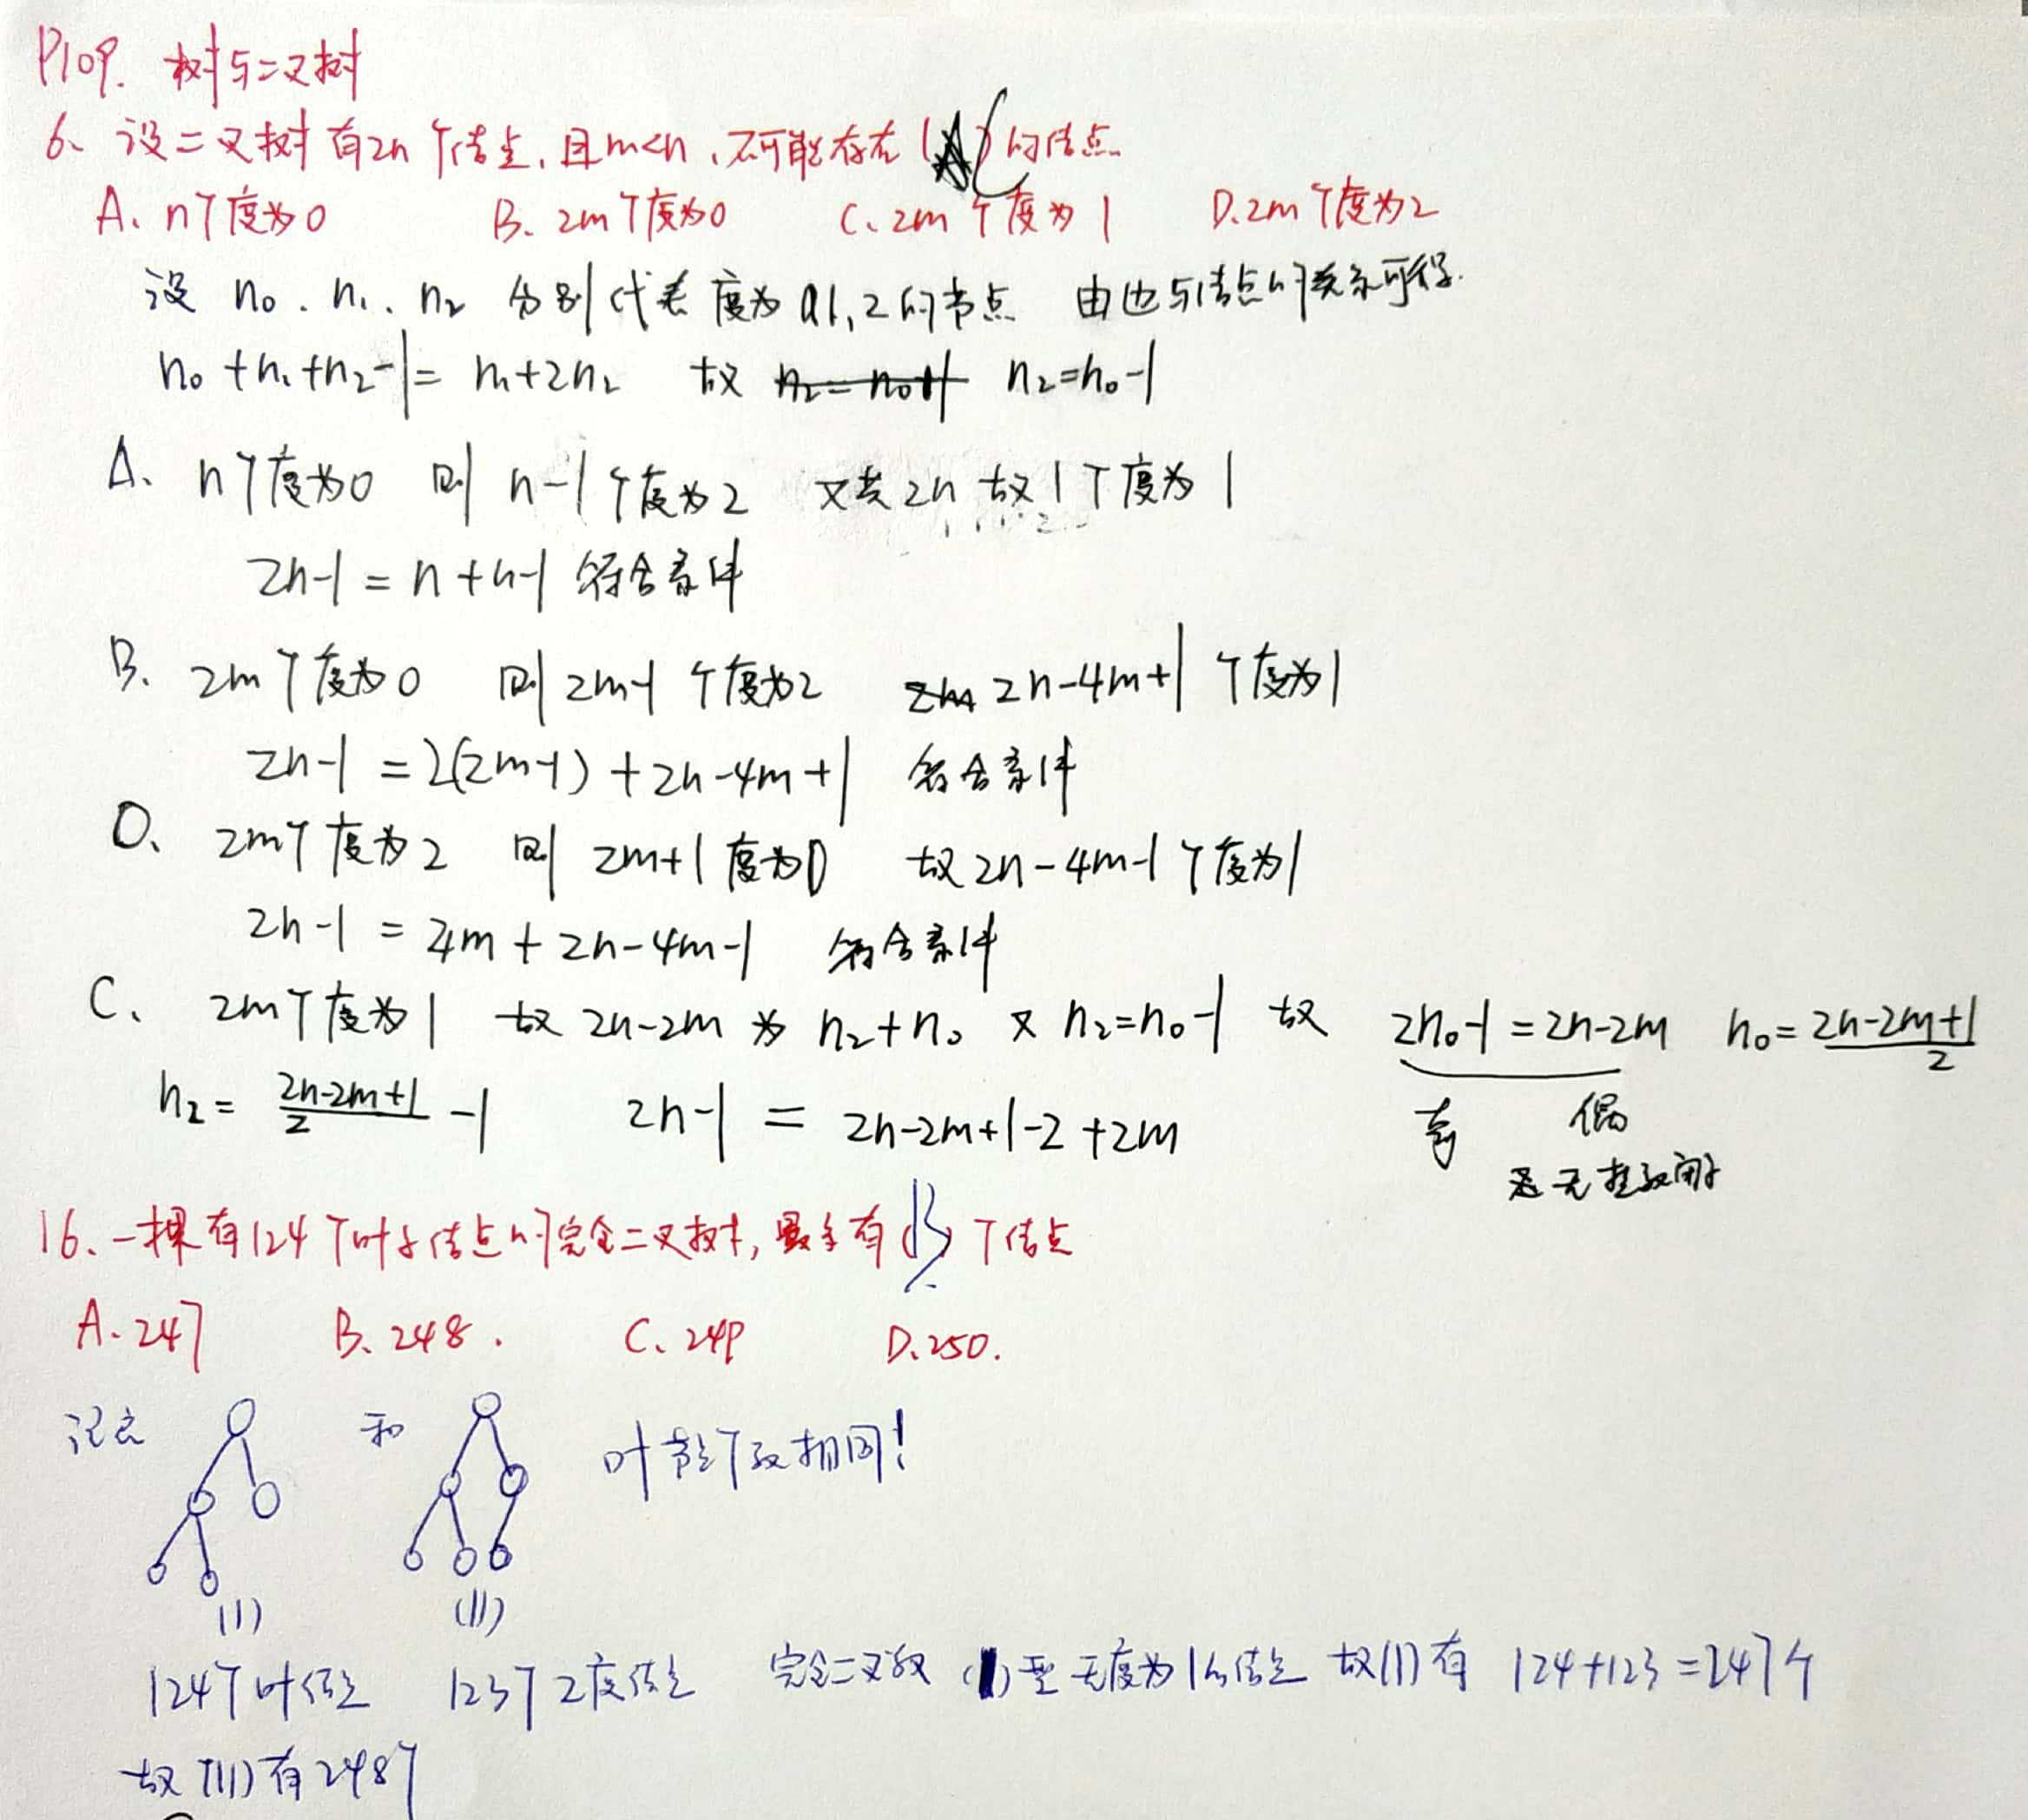 P109. 树与二叉树
6、设二叉树有2n个结点,且m<n,不可能存在(C)的结点.
A、n个度为0 B、2m个度为0 C、2m个度为1 D.2m个度为2
设 n₀、n₁、n₂ 分别代表度为0,1,2的节点 由边与结点的关系可得.
n₀+n₁+n₂-1=n₁+2n₂ 故 n₂=n₀-1
A、n个度为0 则 n-1个度为2 又共2n 故1个度为1
2n-1=n+n-1 符合条件
B、2m个度为0 则2m-1个度为2 2n-4m+1个度为1
2n-1=2(2m-1)+2n-4m+1 符合条件
D、2m个度为2 则 2m+1度为0 故2n-4m-1个度为1
2n-1=4m+2n-4m-1 符合条件
C、2m个度为1 故2n-2m为n₂+n₀ 又n₂=n₀-1 故 2n₀-1=2n-2m n₀=(2n-2m+1)/2
奇 偶
无整数解
n₂=(2n-2m+1)/2-1 2n-1=2n-2m+1-2+2m
16、一棵有124个叶子结点的完全二叉树,最多有 B 个结点
A.247 B、248. C、249 D.250.
记忘 和 叶节点个数相同!
(I) (II)
124个叶结点 123个2度结点 完全二叉数 (I)型无度为1的结点 故(I)有 124+123=247个
故(II)有248个